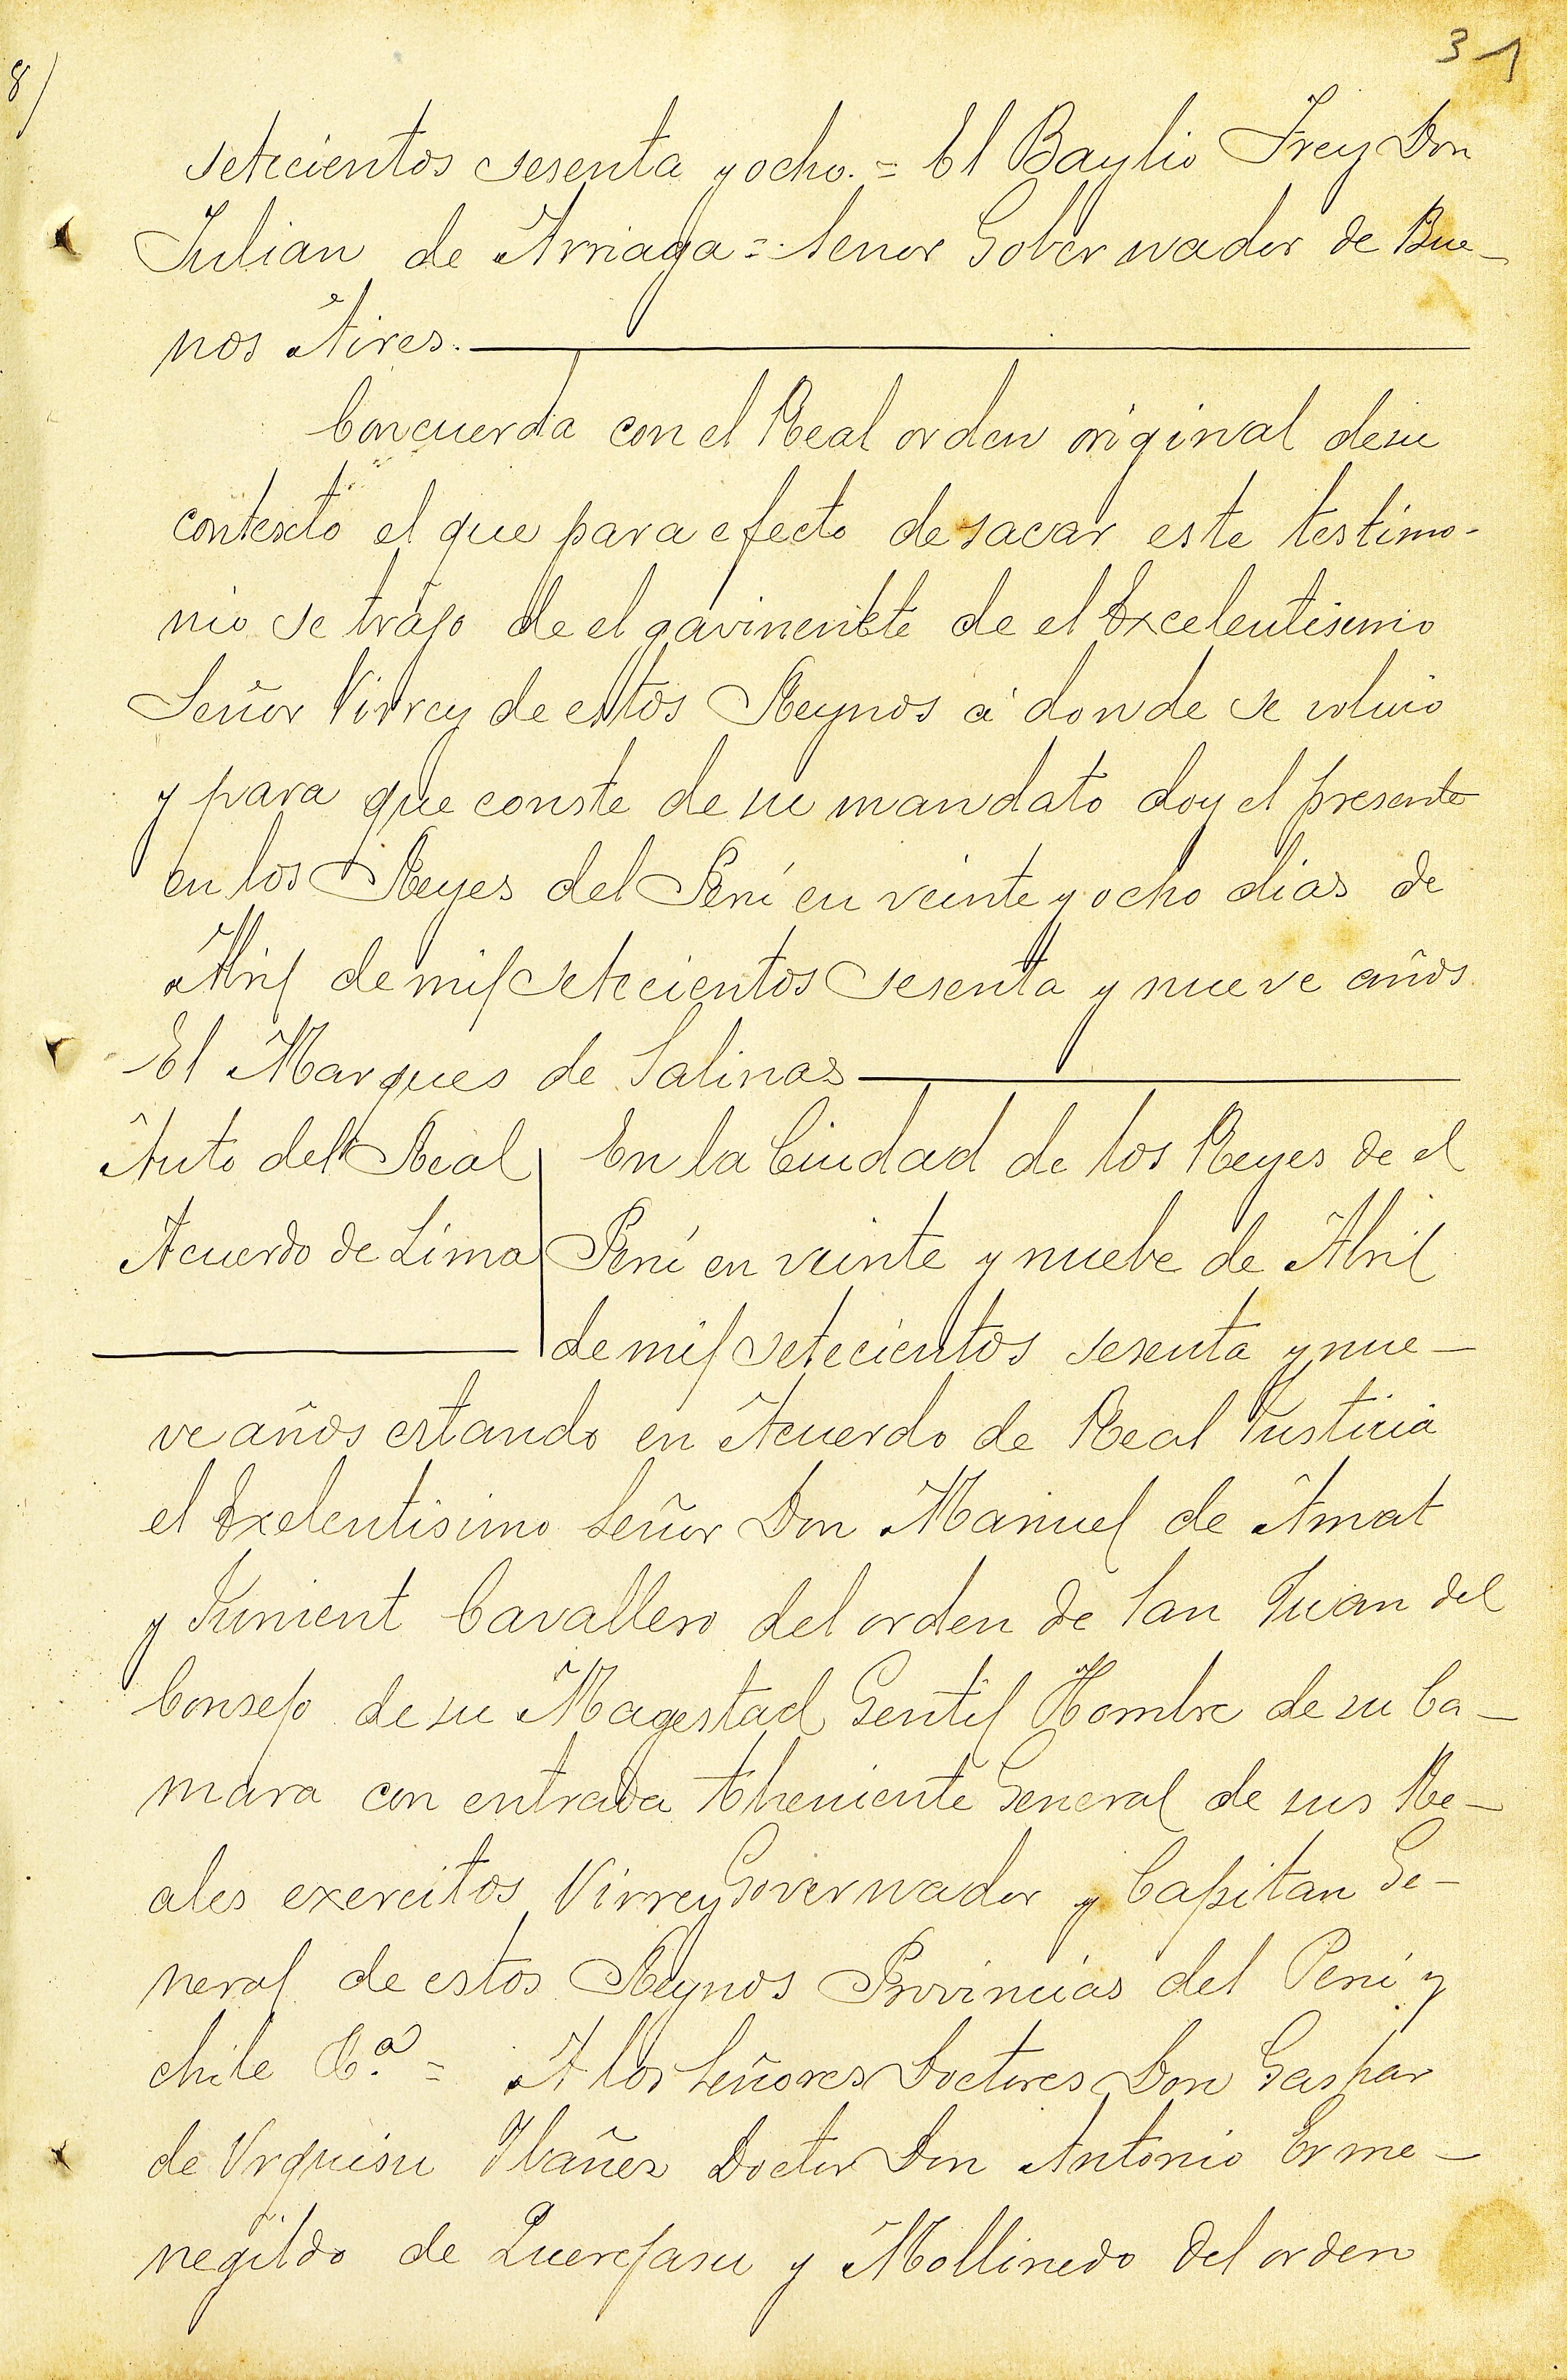 31
8/
setecientos sesenta y ocho. = El Baylio Frey Don
Julian de Arriaga = Señor Gobernador de Bue-
nos Aires.
Concuerda con el Real orden original de su
contexto el que para efecto de sacar este testimo-
nio se trajo de el gavinenete de el Excelentisimo
Señor Virrey de estos Reynos á donde se volvio
y para que conste de su mandato doy el presente
en los Reyes del Perú en veinte y ocho dias de
Abril de mil setecientos sesenta y nueve años
El Marques de Salinas
Auto del Real
Acuerdo de Lima
En la Ciudad de los Reyes de el
Perú en veinte y nuebe de Abril
de mil setecientos sesenta y nue-
ve años estando en Acuerdo de Real Justicia
el Exelentisimo Señor Don Manuel de Amat
y Junient Cavallero del orden de San Juan del
Consejo de su Magestad Gentil Hombre de su Ca-
mara con entrada Theniente General de sus Re-
ales exercitos Virrey Governador y Capitan Ge-
neral de estos Reynos Provincias del Perú y
chile &.ª = A los Señores Doctores Don Gaspar
de Vrquisu Ibañez Doctor Don Antonio Erme-
negildo de Querejasu y Mollinedo del orden